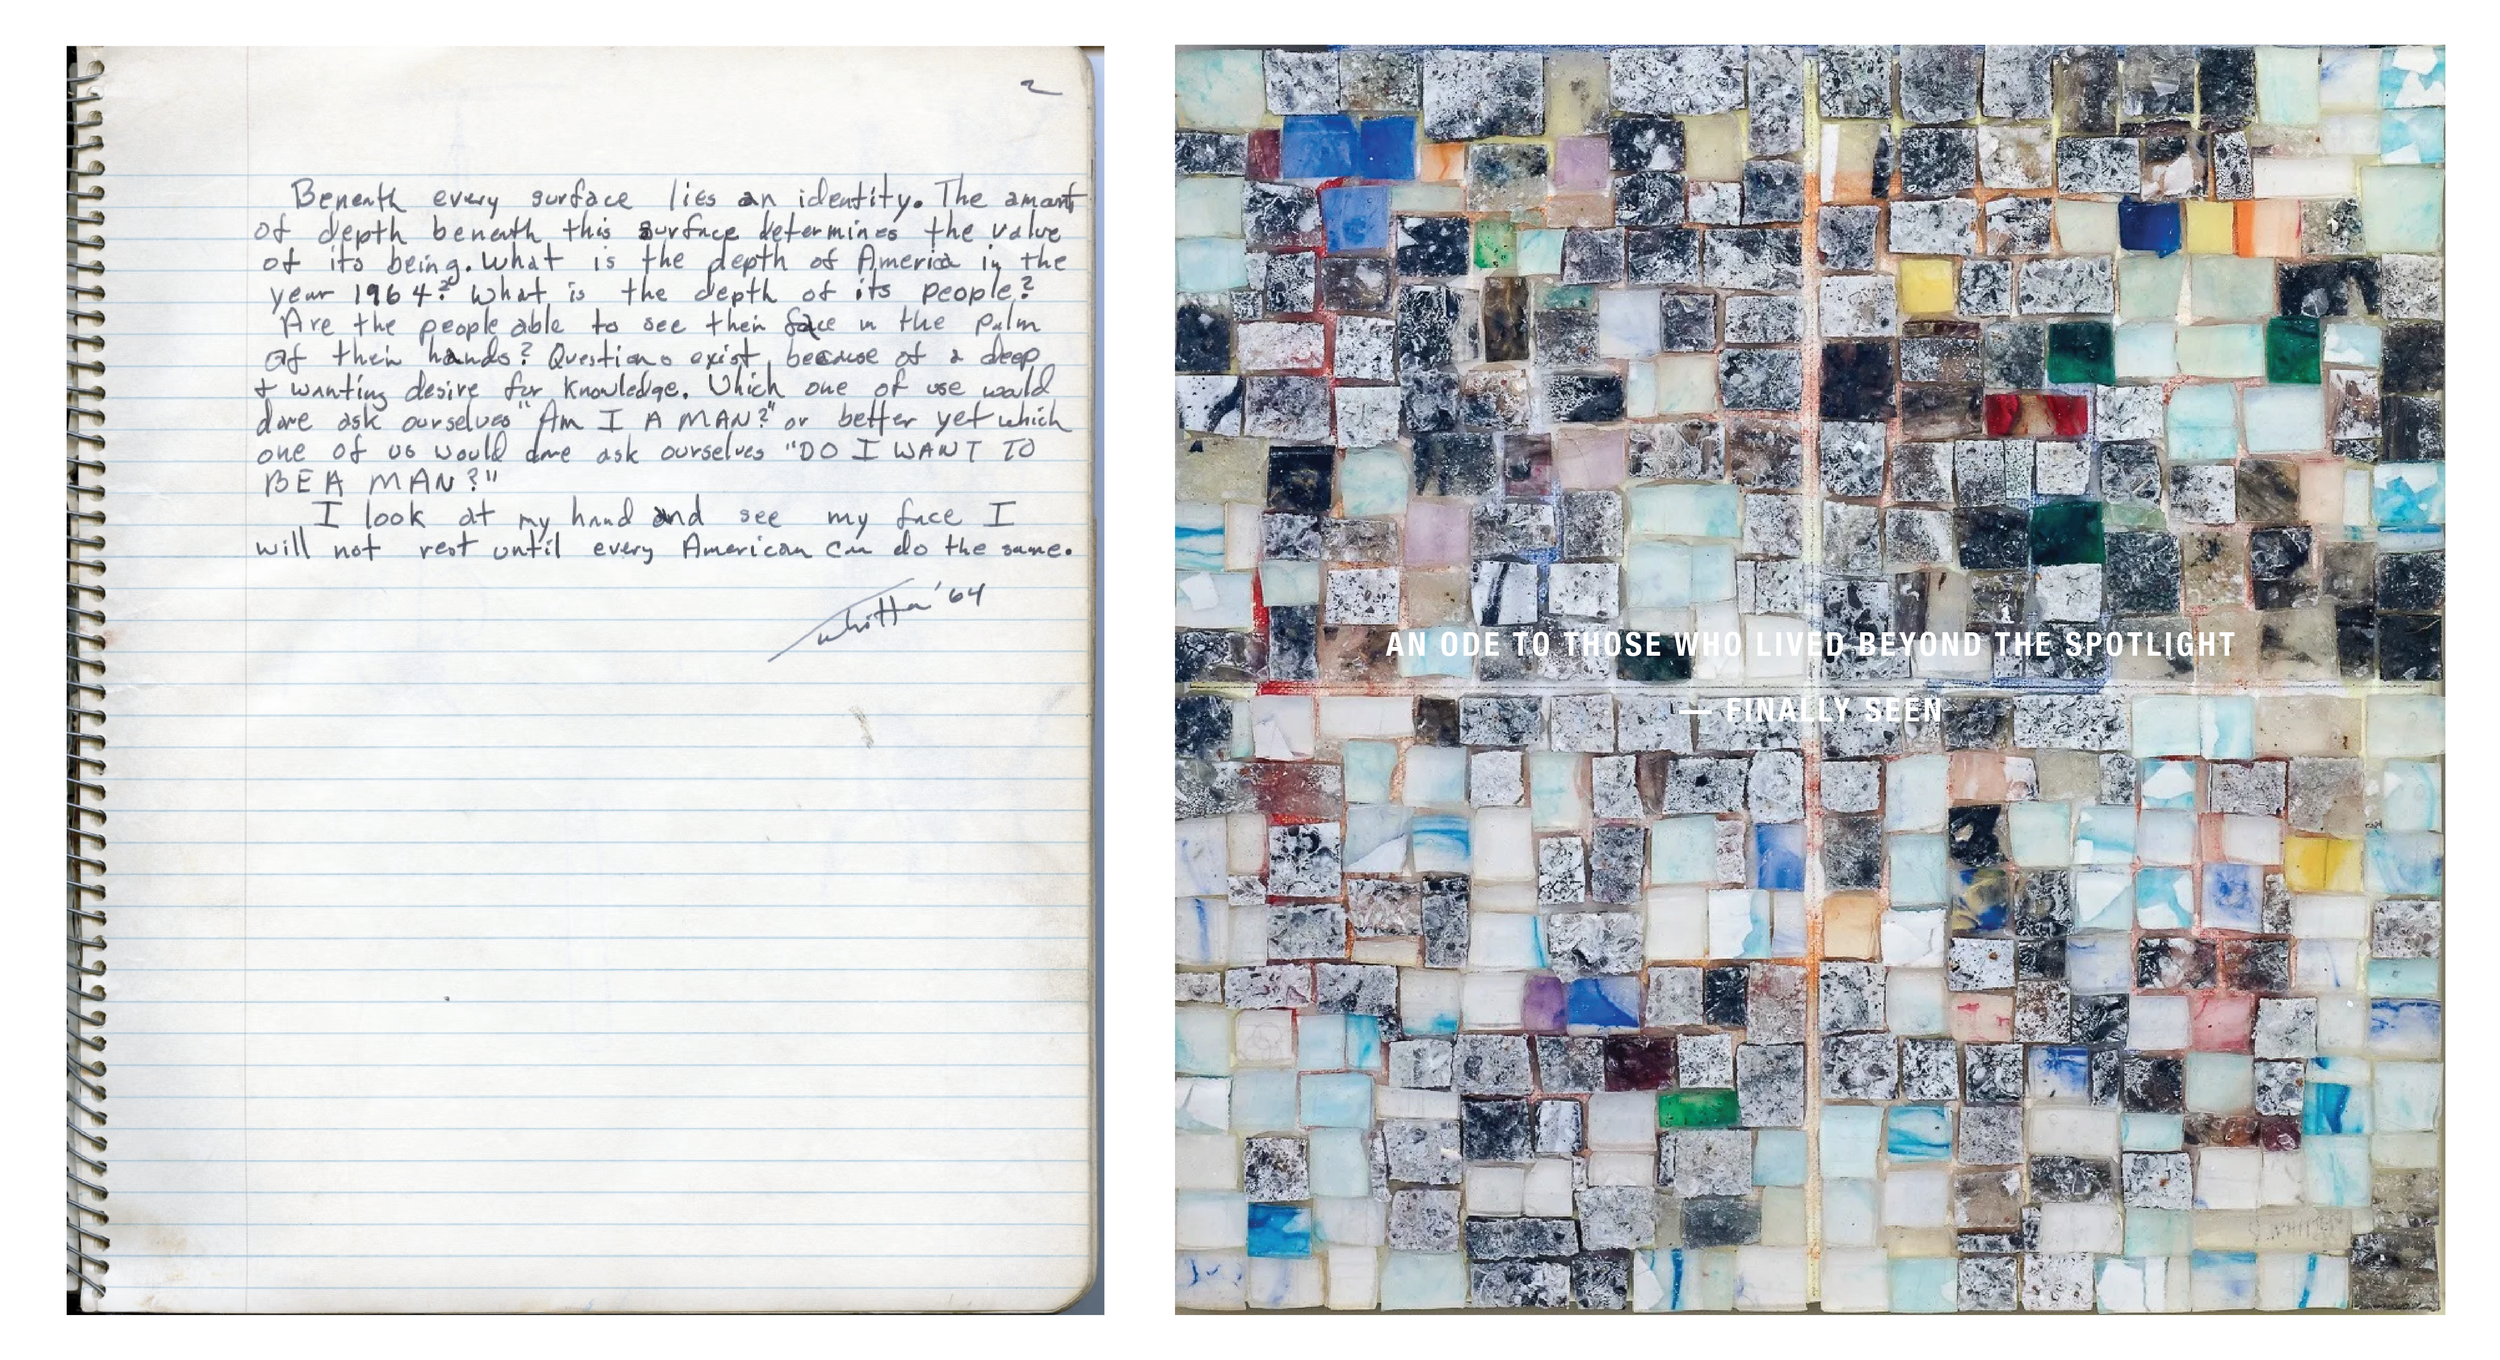 2
Beneath every surface lies an identity. The amont
of depth beneath this surface determines the value
of its being. What is the depth of America in the
year 1964? What is the depth of its people?
Are the people able to see their face in the palm
of their hands? Questions exist because of a deep
+ wanting desire for Knowledge. Which one of use would
dare ask ourselves "Am I A MAN?" or better yet which
one of us would dare ask ourselves "DO I WANT TO
BE A MAN?"
I look at my hand and see my face I
will not rest until every American can do the same.
Whitten '64
AN ODE TO THOSE WHO LIVED BEYOND THE SPOTLIGHT
— FINALLY SEEN